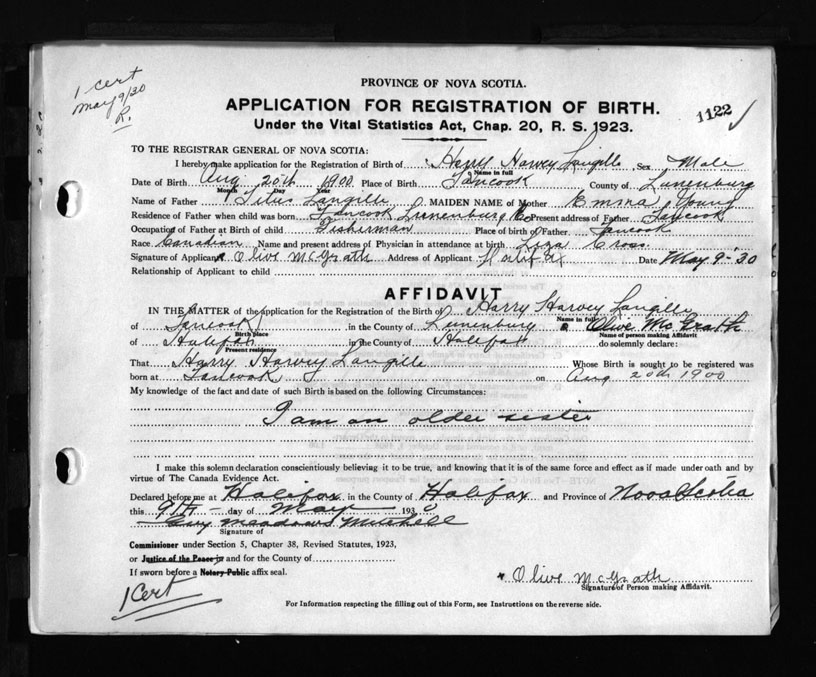 1 cert
May 9/30
R.
PROVINCE OF NOVA SCOTIA.
APPLICATION FOR REGISTRATION OF BIRTH.
1122
Under the Vital Statistics Act, Chap. 20, R. S. 1923.
TO THE REGISTRAR GENERAL OF NOVA SCOTIA:
I hereby make application for the Registration of Birth of Harry Harvey Langille Sex Male
Name in full
Date of Birth Aug 20th 1900 Place of Birth Tancook County of Lunenburg
Month Day Year
Name of Father Titus Langille MAIDEN NAME of Mother Emma Young
Residence of Father when child was born Tancook Lunenburg Co Present address of Father Tancook
Occupation of Father at Birth of child Fisherman Place of birth of Father Tancook
Race Canadian Name and present address of Physician in attendance at birth Liza Cross.
Signature of Applicant Olive McGrath Address of Applicant Halifax Date May 9-'30
Relationship of Applicant to child
AFFIDAVIT
IN THE MATTER of the application for the Registration of the Birth of Harry Harvey Langille
Name in full
of Tancook in the County of Lunenburg Olive McGrath
Birth place Name of person making Affidavit
of Halifax in the County of Halifax do solemnly declare:
Present residence
That Harry Harvey Langille Whose Birth is sought to be registered was
born at Tancook on Aug 20th 1900
My knowledge of the fact and date of such Birth is based on the following Circumstances:
I am an older sister
I make this solemn declaration conscientiously believing it to be true, and knowing that it is of the same force and effect as if made under oath and by
virtue of The Canada Evidence Act.
Declared before me at Halifax in the County of Halifax and Province of Nova Scotia
this 9th day of May 1930
Guy Meadows Mitchell
Signature of
Commissioner under Section 5, Chapter 38, Revised Statutes, 1923,
or Justice of the Peace in and for the County of
If sworn before a Notary Public affix seal.
Olive McGrath
Signature of Person making Affidavit.
1 Cert
For Information respecting the filling out of this Form, see Instructions on the reverse side.